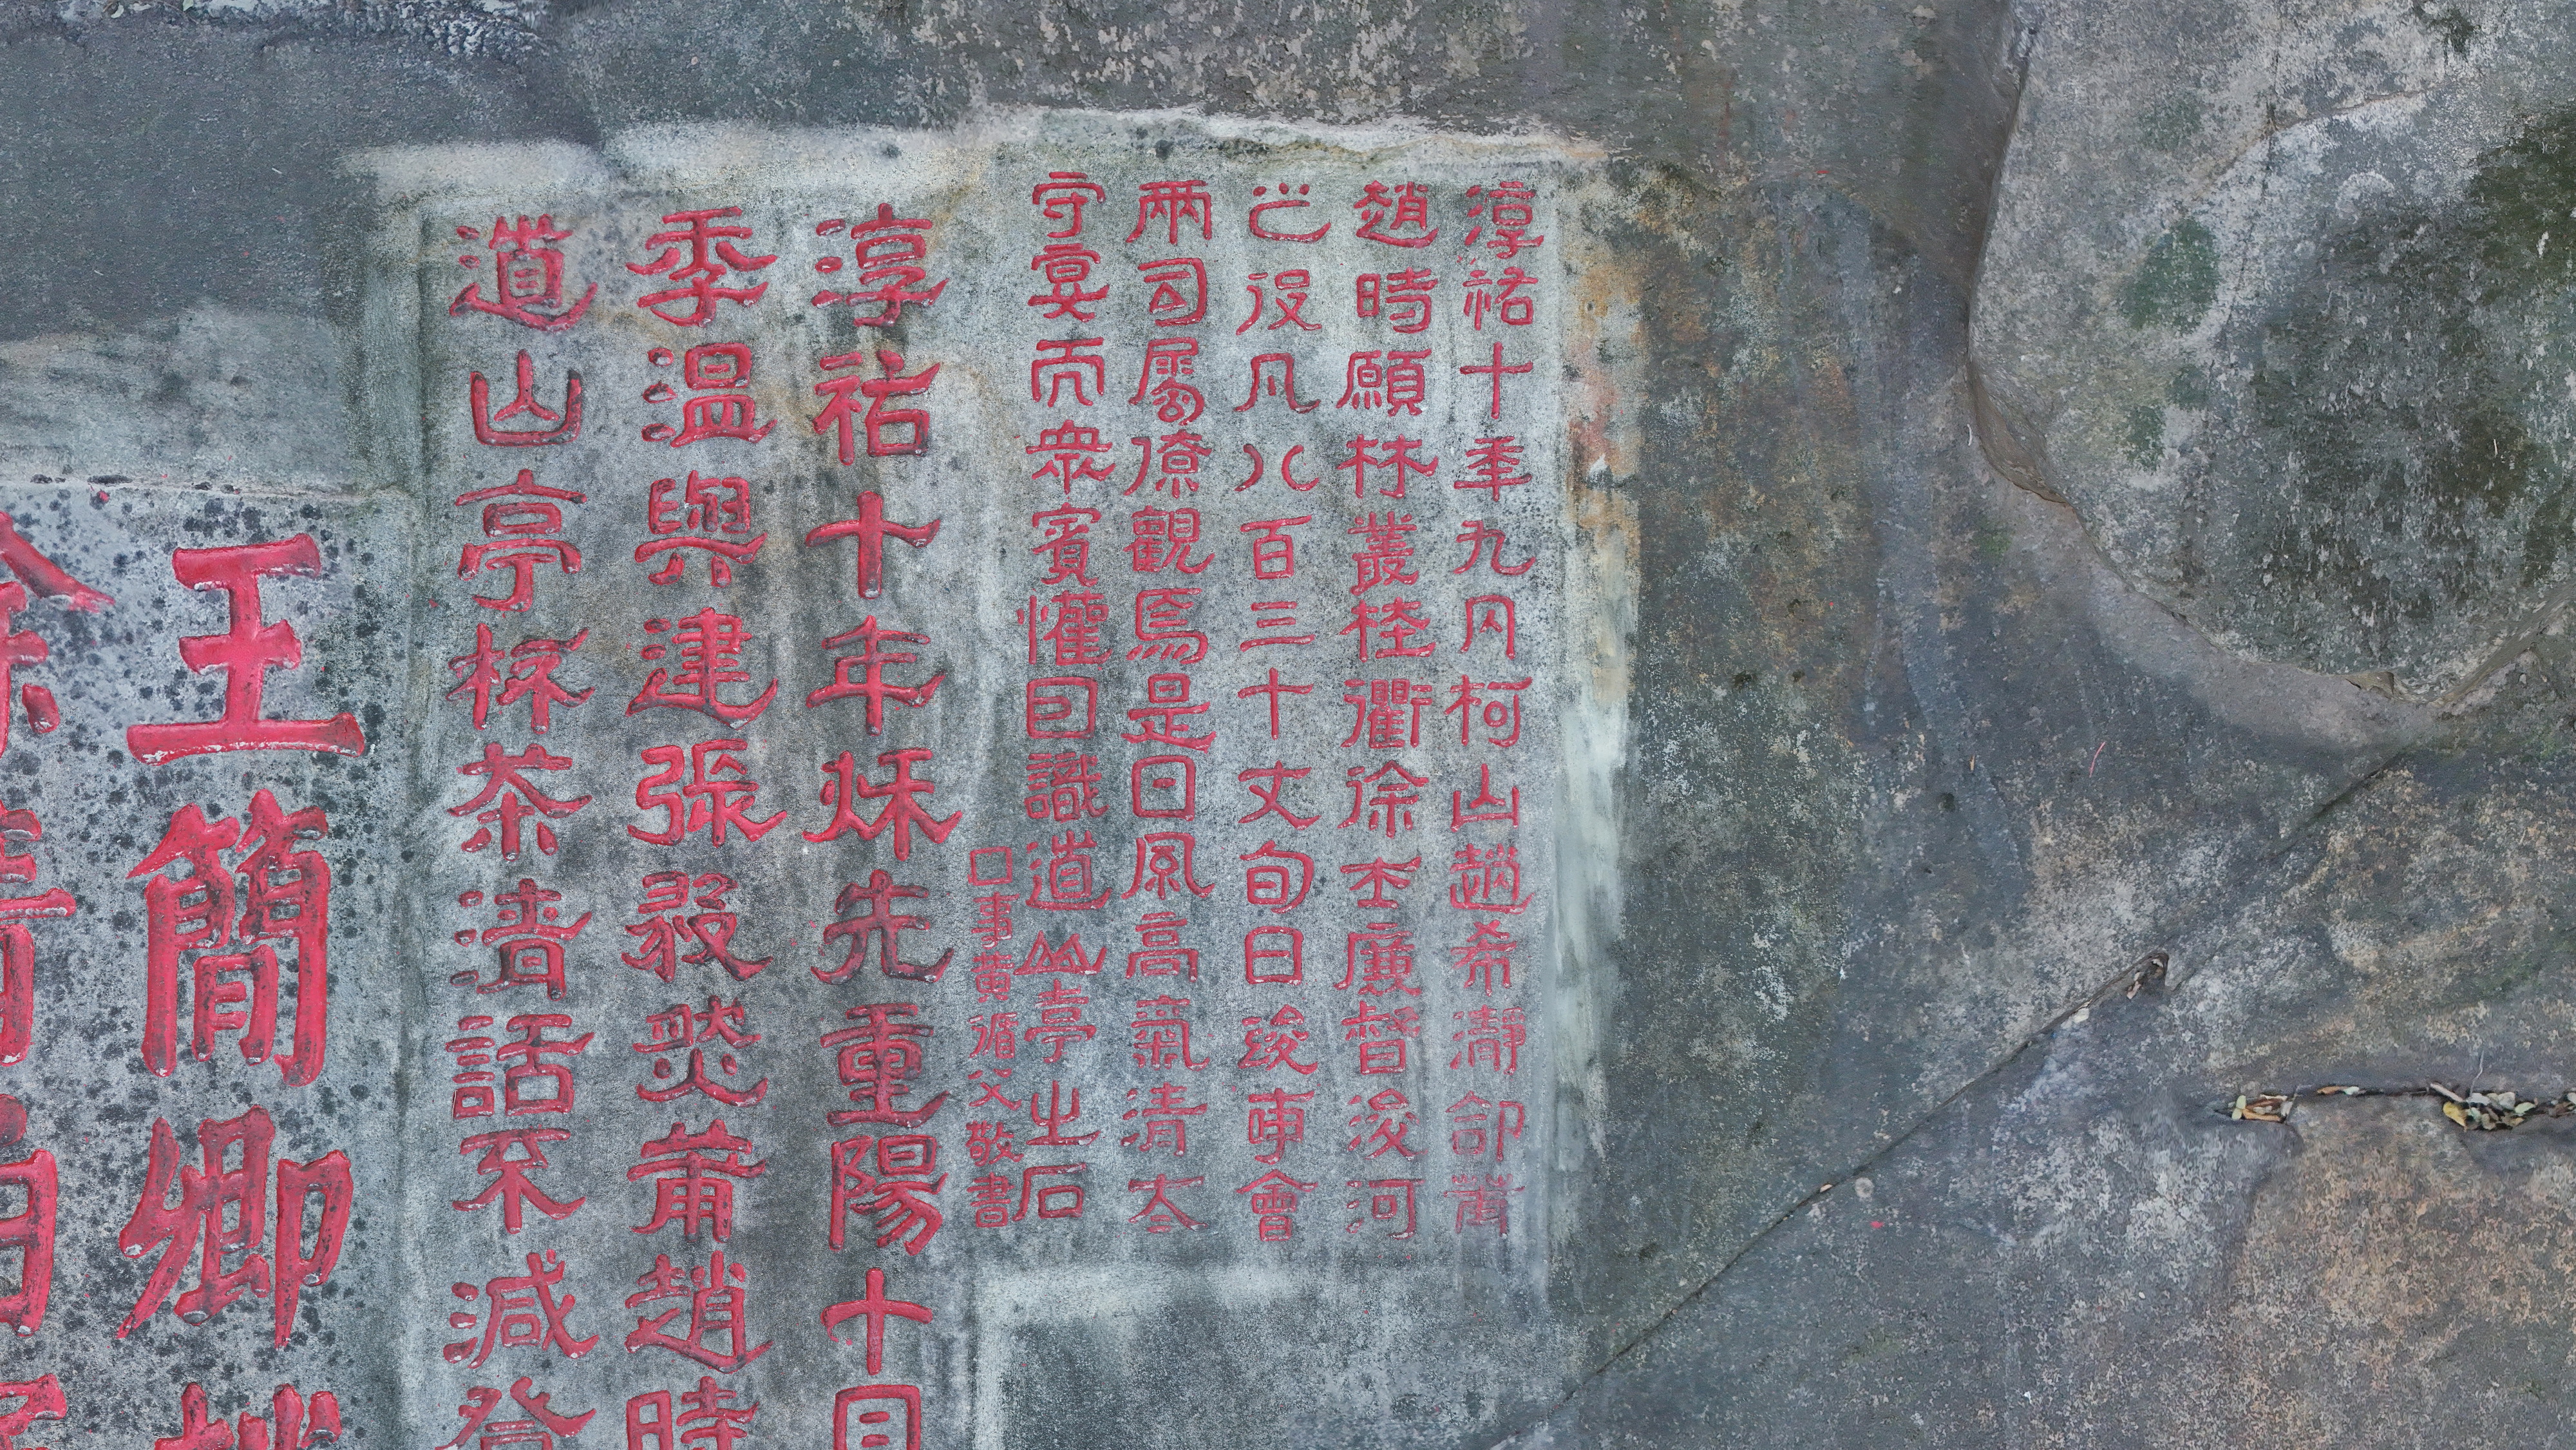 淳祐十年九月柯山趙希瀞命莆
趙時願林叢桂衢徐士廉督浚河
之役凡八百三十丈旬日竣事會
兩司屬僚觀焉是日風高氣清太
守宴而衆賓懽因識道山亭之石
口事黄循父敬書
淳祐十年秌先重陽十日
季溫與建張發煚莆趙時
道山亭杯茶清話不減登
王簡卿